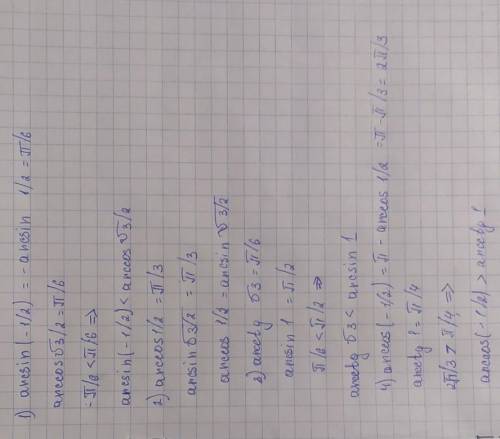 1) arcsin(-1/2) = -arcsin 1/2 = π/6
arccos√3/2 = π/6
-π/2 < π/6 =>
arcsin(-1/2) < arccos√3/2
2) arccos 1/2 = π/3
arcsin √3/2 = π/3
arccos 1/2 = arcsin √3/2
3) arcctg √3 = π/6
arcsin 1 = π/2
π/2 < π/2 =>
arcctg √3 < arcsin 1
4) arccos(-1/2) = π - arccos 1/2 = π - π/3 = 2π/3
arcctg 1 = π/4
2π/3 > π/4 =>
arccos(-1/2) > arcctg 1